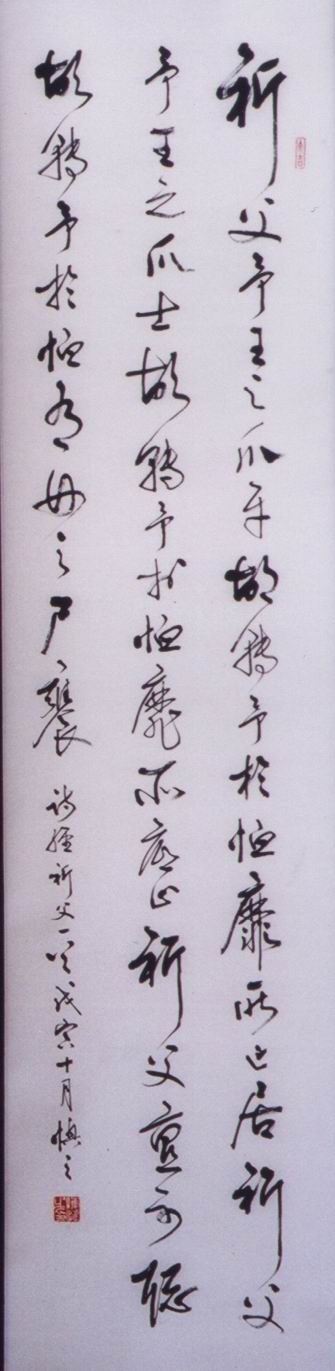 祈父予王之爪牙胡轉予於恤靡所止居祈父
予王之爪士胡轉予於恤靡所底止祈父亶不聰
胡轉予於恤有母之尸饔 詩經祈父一首戊寅十月慎之